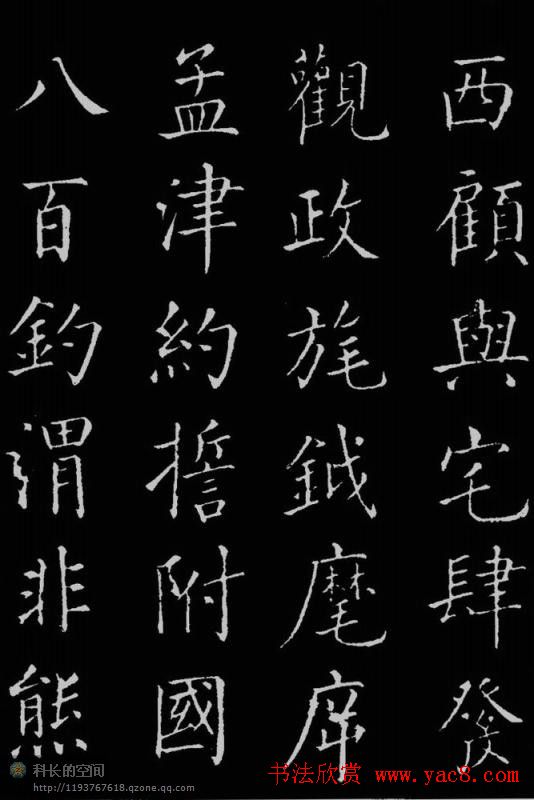 西顧與宅肆發
觀政旄鉞麾席
孟津約誓附國
八百釣渭非熊
科长的空间
http://1193767618.qzone.qq.com
书法欣赏 www.yac8.com